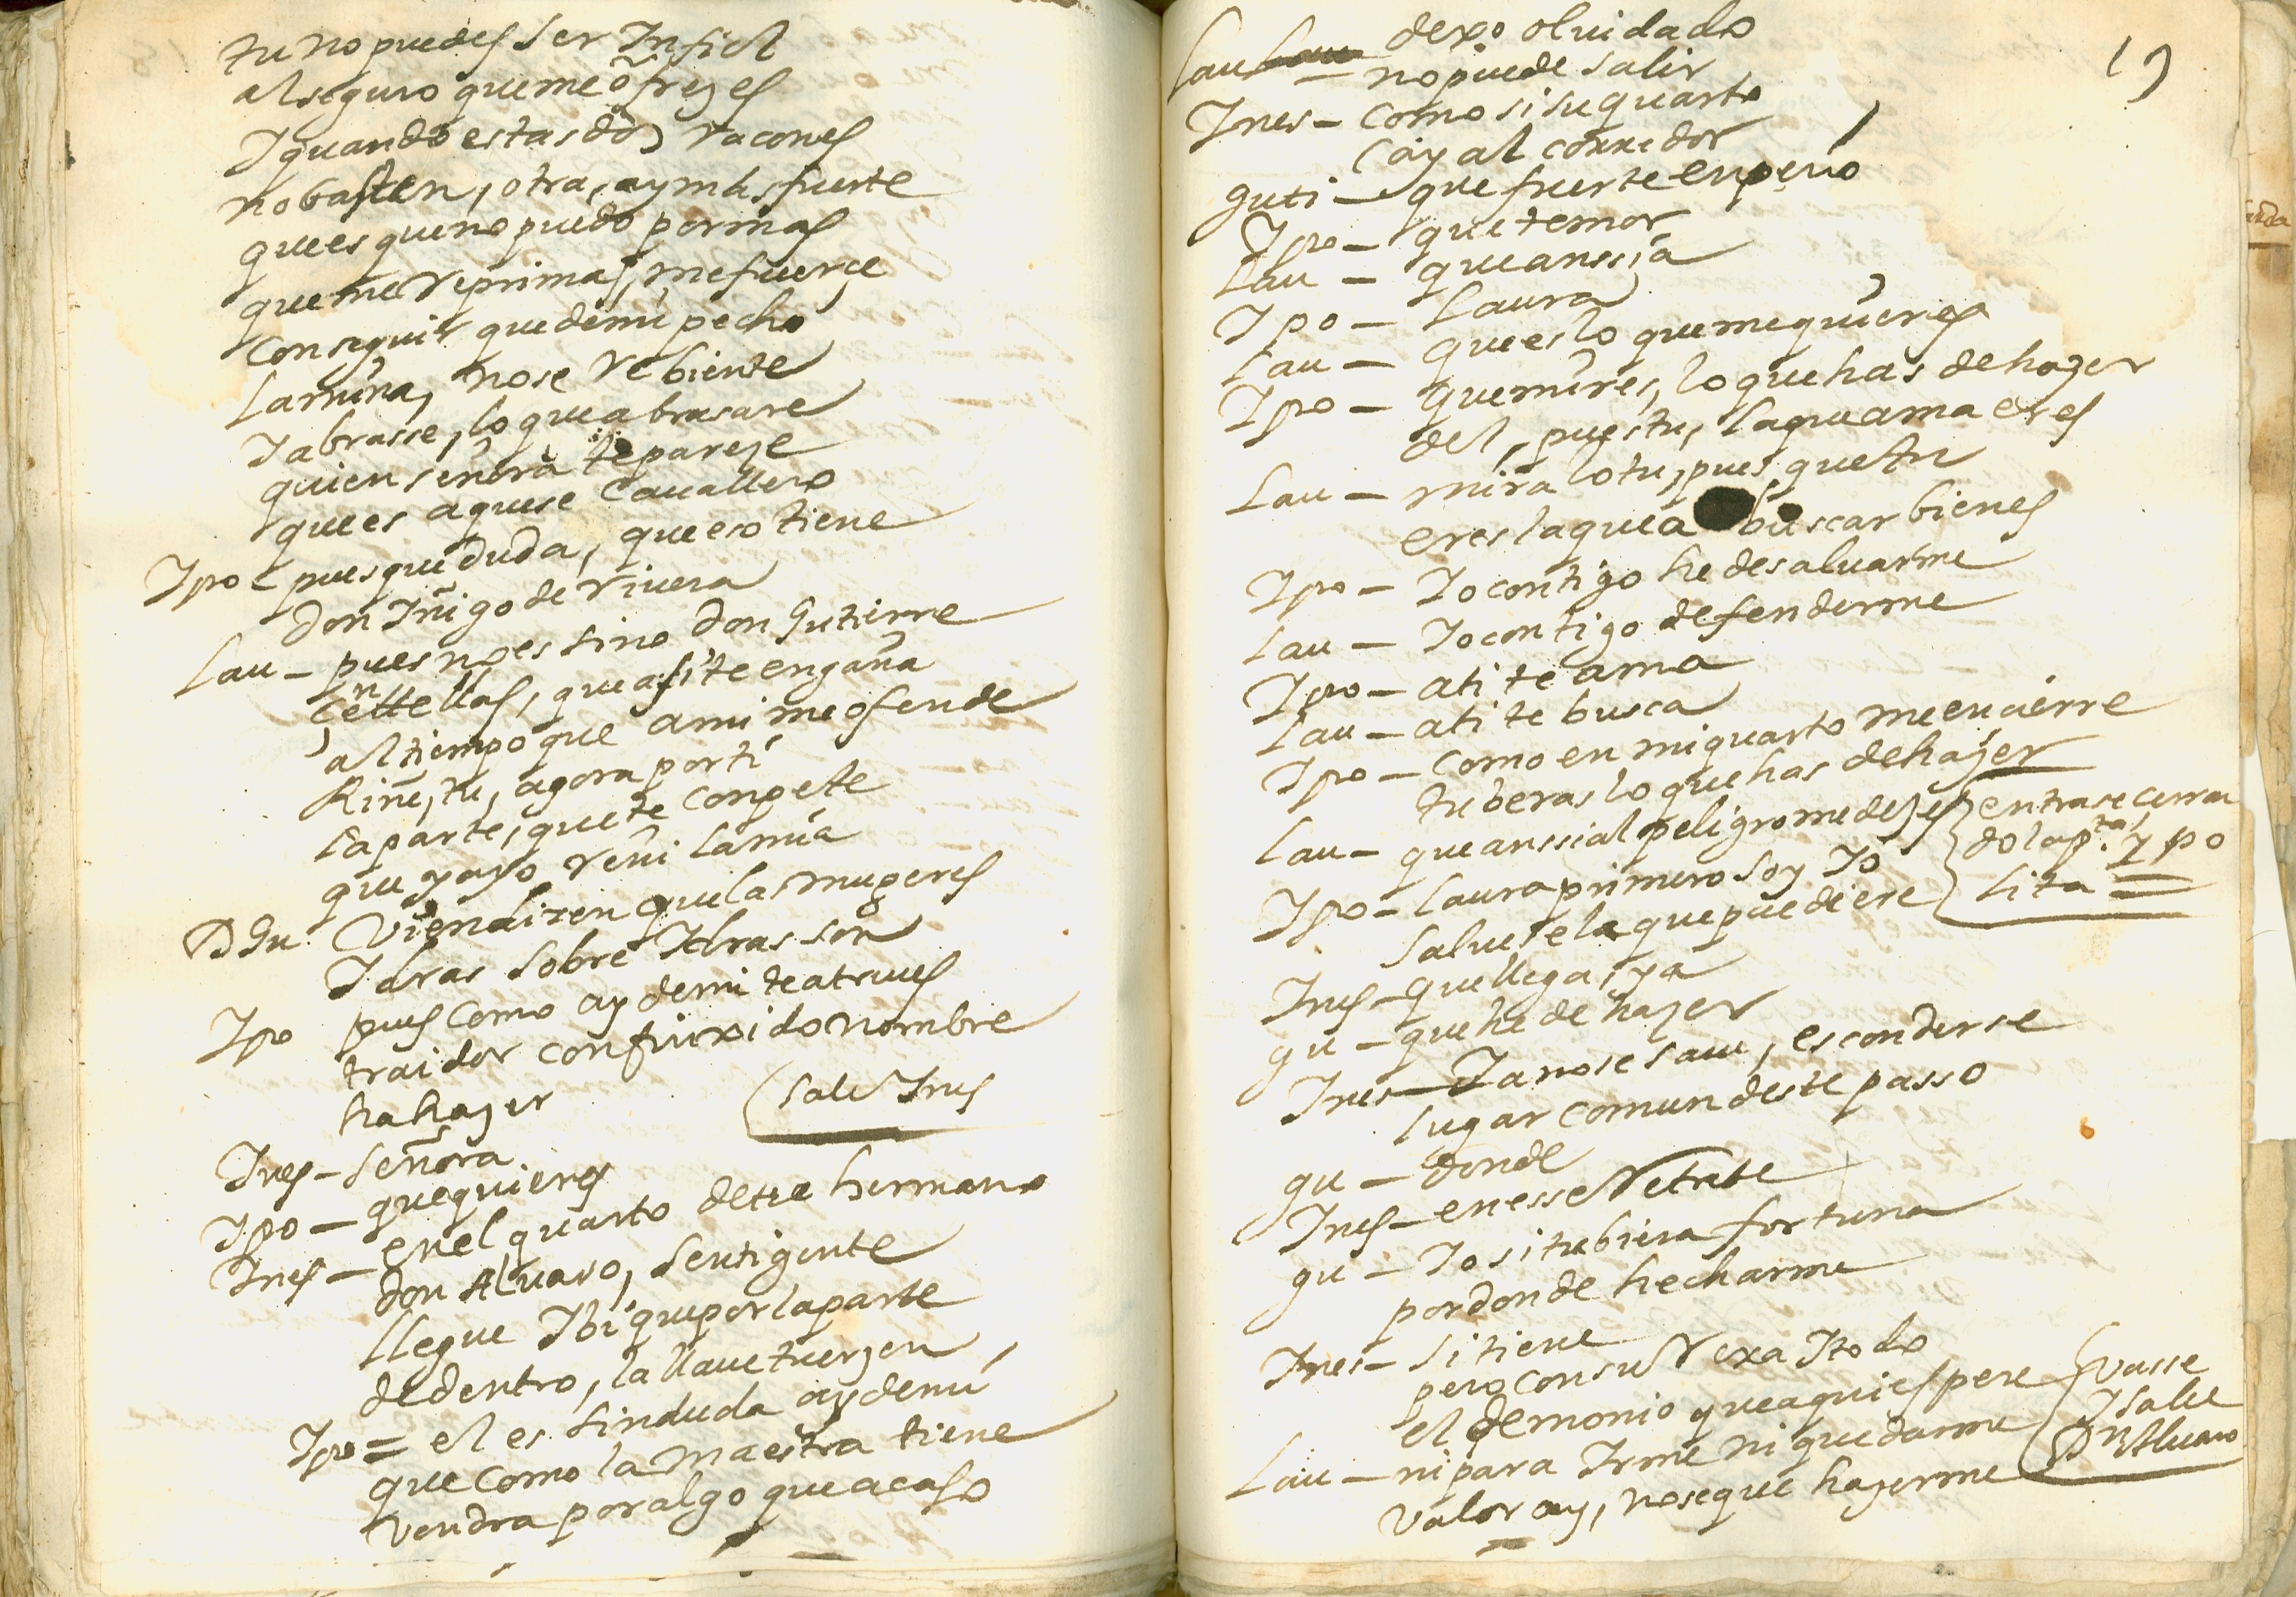 tu no puedes ser Infiel
al seguro que me ofrezes
Y quando estas dos racones
no basten, otra, ay mas fuerte
que es que no puedo por mas
que me reprimas, me fuerce
conseguir que de mi pecho
la mina, no se rebiente
Y abrasse, lo que abrasare
quien señora te pareze
que es aquese cauallero
Ipo - pues que duda, que eso tiene
Don Iñigo de rivera
Lau - pues no es sino Don Gutierre
Centellas, que asi te engaña
al tiempo que a mi me ofende
Riñe, tu, agora por ti
la parte, que te conpete
que ya yo reñi la mia
D Gu. Vien dizen que las mugeres
Idras sobre Idras son
Ipo pues como ay de mi te atreues
traidor con finxido nombre
ha hazer
(sale Ines
Ines - señora
Ipo - que quieres
Ines - en el quarto de tu hermano
don Aluaro, senti gente
llegue Y bi que por la parte
de dentro, la llaue tuerzen
Ipo = el es sin duda ay de mi
que como la maestra tiene
vendra por algo que acaso
19
dexo oluidado
Lau - no puede salir
Ines - como si su quarto
cay al corredor
guti - que fuerte enpeño
Ipo - que temor
Lau - que anssia
Ipo - Laura
Lau - que es lo que me quieres
Ipo - que mires, lo que has de hazer
del, pues tu, la que ama eres
Lau - mira lo tu, pues que tu
eres la que a buscar bienes
Ipo - Yo contigo he de saluarme
Lau - Yo contigo defenderme
Ipo - a ti te ama
Lau - a ti te busca
Ipo - como en mi quarto me encierre
tu beras lo que has de hazer
Lau - que anssi al peligro me dejes
entrase cerran
do la pta. Ypo
lita =
Ipo - Laura primero soy Yo
saluese la que pudiere
Ines - que llega, ya
gu - que he de hazer
Ines - Ya no se saue, esconderse
lugar comun deste passo
gu - donde
Ines - en esse retrete
gu - Yo si tubiera fortuna
por donde hecharme
Ines - si tiene
pero con su rexa Y todo
el demonio que aqui espere
(vasse
Y sale
Dn Aluaro
Lau - ni para Irme ni quedarme
valor ay, no se que hazerme